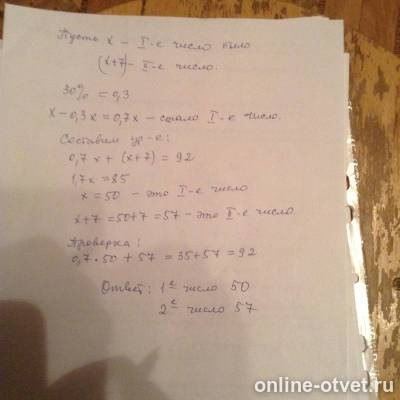 Пусть x – I-е число было
(x+7) – II-е число.
30% = 0,3
x – 0,3x = 0,7x – стало I-е число.
Составим ур-е:
0,7x + (x+7) = 92
1,7x = 85
x = 50 – это I-е число
x+7 = 50+7 = 57 – это II-е число.
Проверка:
0,7 · 50 + 57 = 35+57 = 92
Ответ: 1е число 50
2е число 57
online-otvet.ru